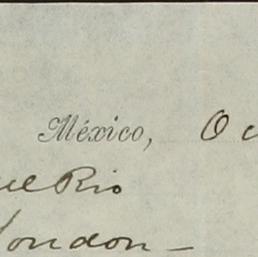 México, Oc
el Rio
London –